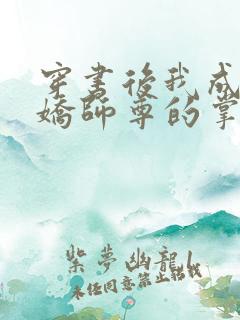 穿書後我成
嬌師尊的掌
紫夢幽龍1
未經同意禁止轉載